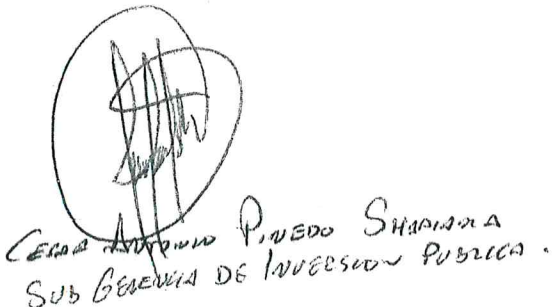 CESAR ANTONIO PINEDO
SUB GERENCIA DE INVERSION PUBLICA.